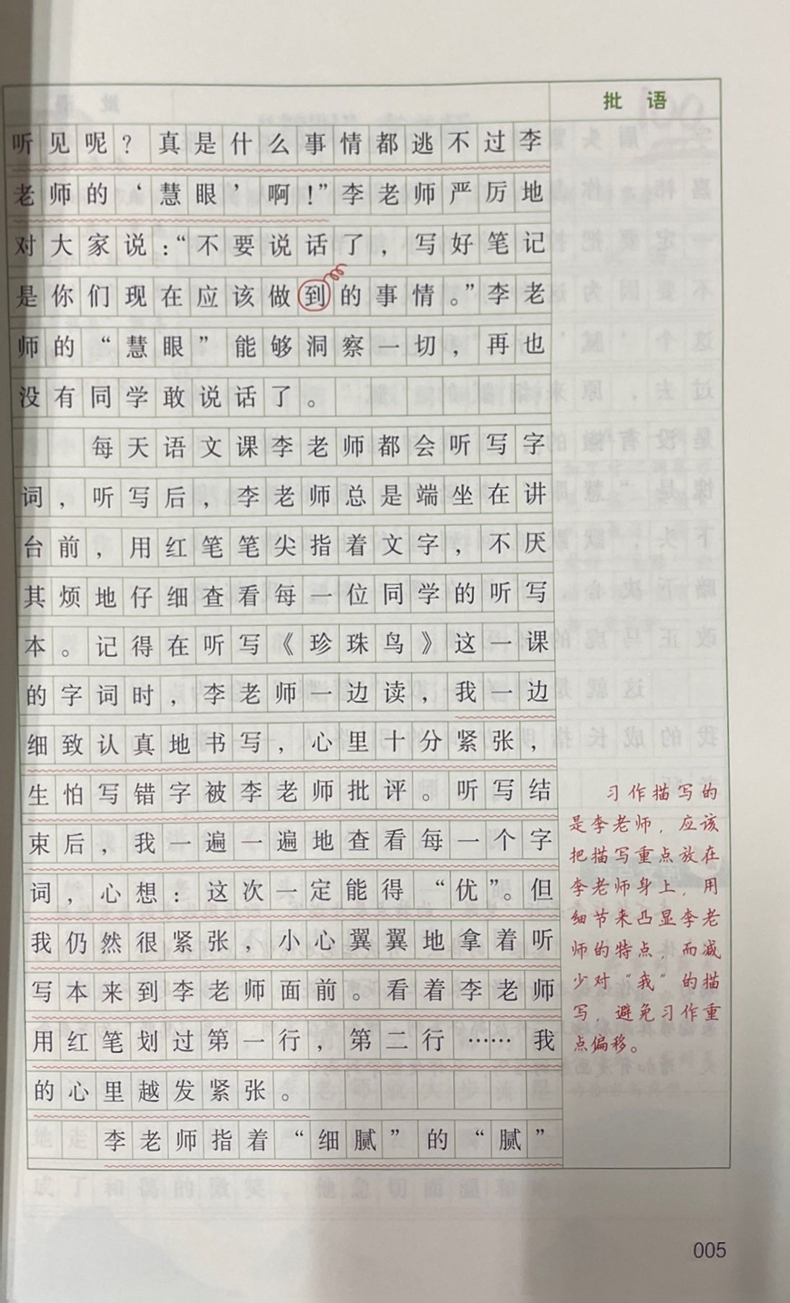 批 语
听见呢？真是什么事情都逃不过李
老师的‘慧眼’啊！”李老师严厉地
对大家说：“不要说话了，写好笔记
是你们现在应该做到的事情。”李老
师的“慧眼”能够洞察一切，再也
没有同学敢说话了。
每天语文课李老师都会听写字
词，听写后，李老师总是端坐在讲
台前，用红笔笔尖指着文字，不厌
其烦地仔细查看每一位同学的听写
本。记得在听写《珍珠鸟》这一课
的字词时，李老师一边读，我一边
细致认真地书写，心里十分紧张，
生怕写错字被李老师批评。听写结
束后，我一遍一遍地查看每一个字
词，心想：这次一定能得“优”。但
我仍然很紧张，小心翼翼地拿着听
写本来到李老师面前。看着李老师
用红笔划过第一行，第二行……我
的心里越发紧张。
李老师指着“细腻”的“腻”
习作描写的
是李老师，应该
把描写重点放在
李老师身上，用
细节来凸显李老
师的特点，而减
少对“我”的描
写，避免习作重
点偏移。
005